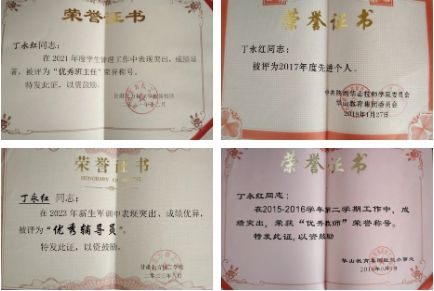 荣誉证书
丁永红同志：
在2021年度学生管理工作中表现突出，成绩显
著，被评为“优秀班主任”荣誉称号。
特发此证，以资鼓励。
荣誉证书
丁永红同志：
被评为2017年度先进个人。
华山教育集团委员会
2018年1月27日
荣誉证书
丁永红 同志：
在2023年新生军训中表现突出，成绩优异，
被评为“优秀辅导员”。
特发此证，以资鼓励。
二〇二三年八月
荣誉证书
丁永红同志：
在2015-2016学年第二学期工作中，成
绩突出，荣获“优秀教师”荣誉称号。
特发此证，以资鼓励